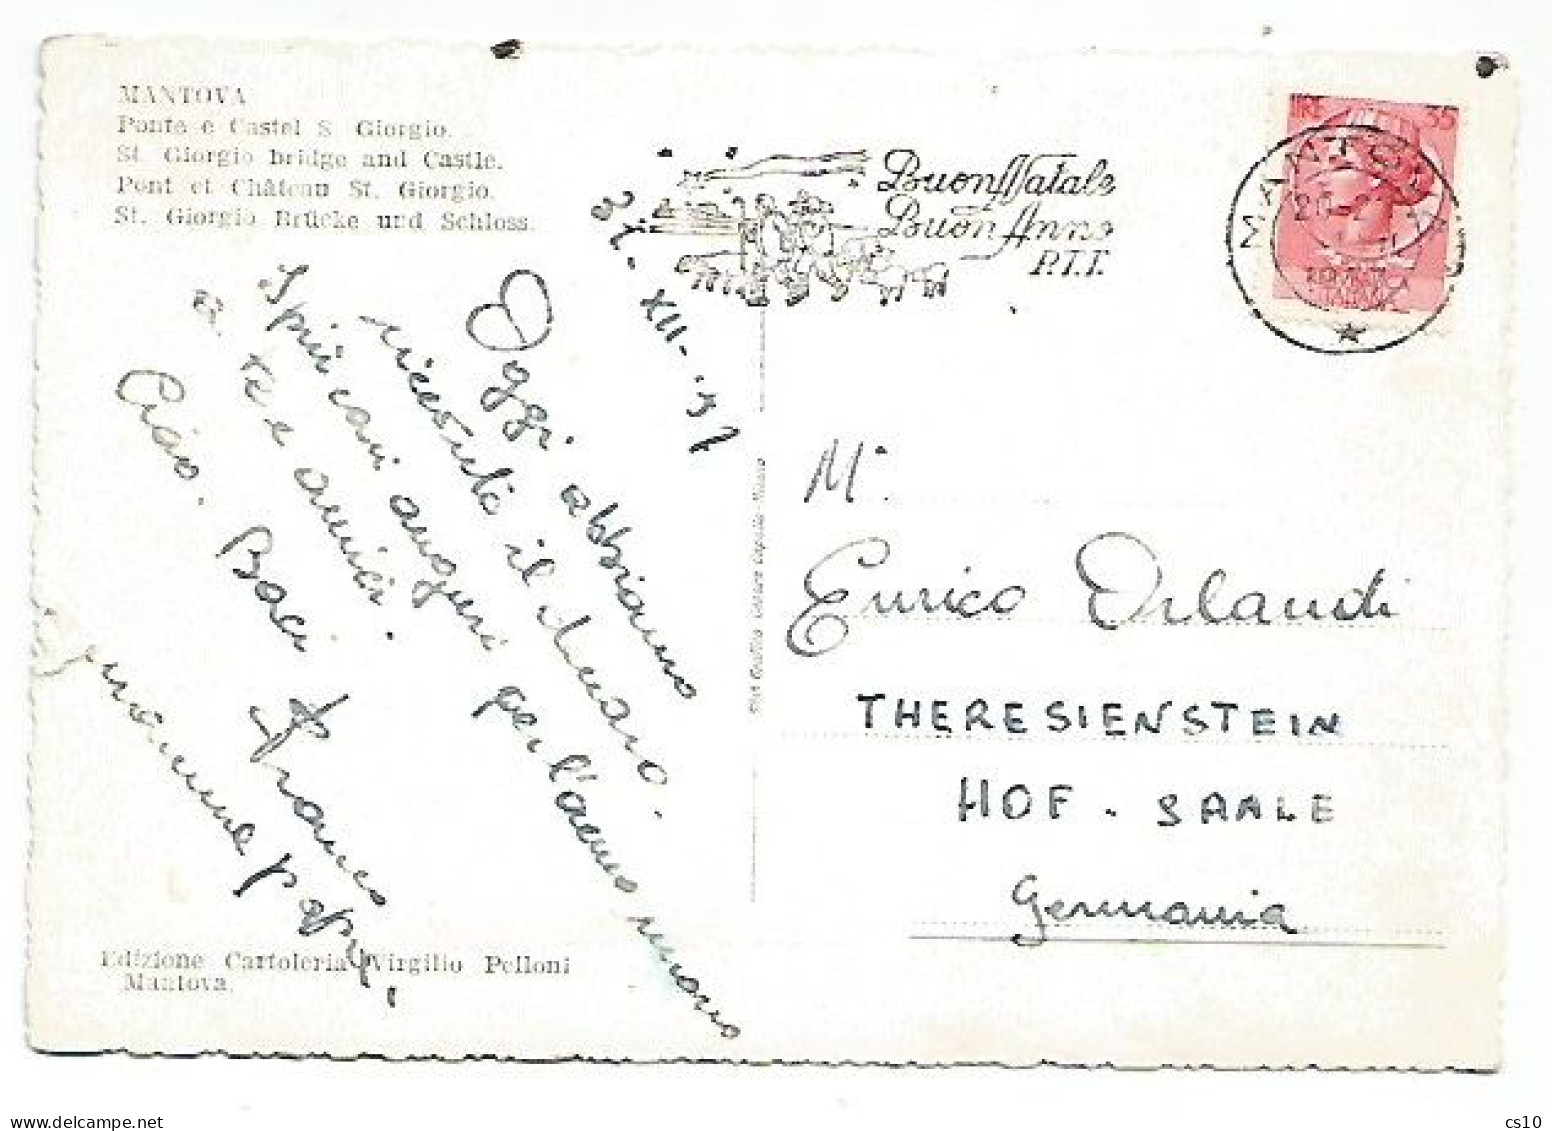 MANTOVA
Ponte e Castel S. Giorgio.
St. Giorgio bridge and Castle.
Pont et Château St. Giorgio.
St. Giorgio Brücke und Schloss.
Buon Natale
Buon Anno
P.T.T.
LIRE 35
MANTOVA
XII
Oggi abbiamo
ricevuto il denaro.
I più cari auguri per l'anno nuovo
a te e amici.
Ciao. Baci
Franco
mamma e papà
M.
Enrico Orlandi
THERESIENSTEIN
HOF - SAALE
Germania
Edizione Cartoleria Virgilio Pelloni
Mantova.
cs10
delcampe.net